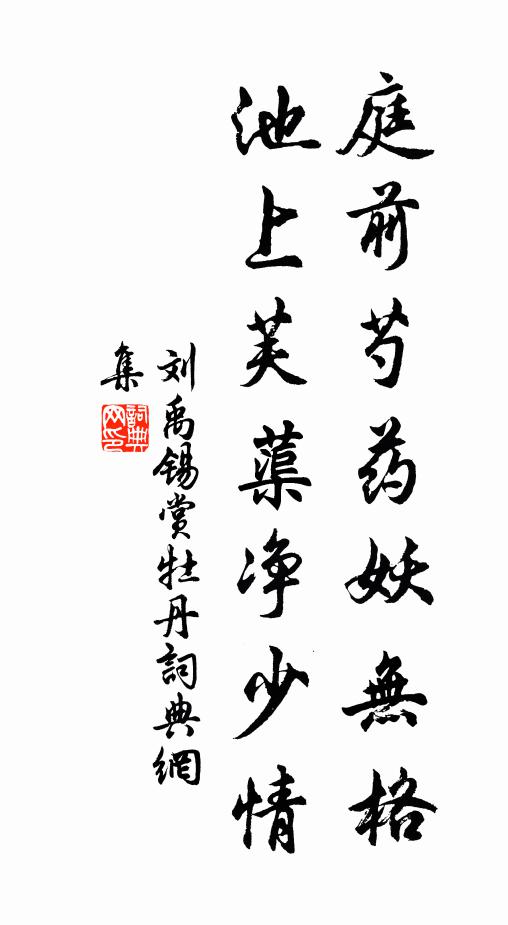 庭前芍药妖無格
池上芙蕖净少情
刘禹锡赏牡丹詞典網
集
詞典网印